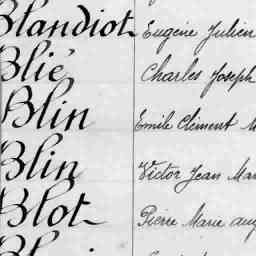 Blandiot Eugène Julien
Blié Charles Joseph
Blin Emile Clément
Blin Victor Jean
Blot Pierre Marie